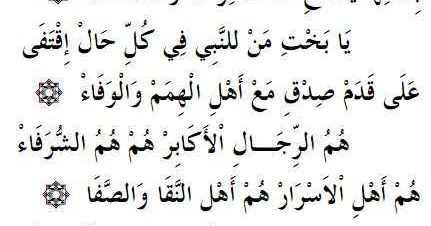 يَا بَخْتِ مَنْ للنَّبِي فِي كُلِّ حَالْ إِقْتَفَى
عَلَى قَدَمْ صِدْقِ مَعْ أَهْلِ الْهِمَمْ وَالْوَفَاءْ
هُمُ الرِّجَــالِ الْأَكَابِرْ هُمْ هُمُ الشُّرَفَاءْ
هُمْ أَهْلِ الْاَسْرَارْ هُمْ أَهْلِ النَّقَا وَالصَّفَا